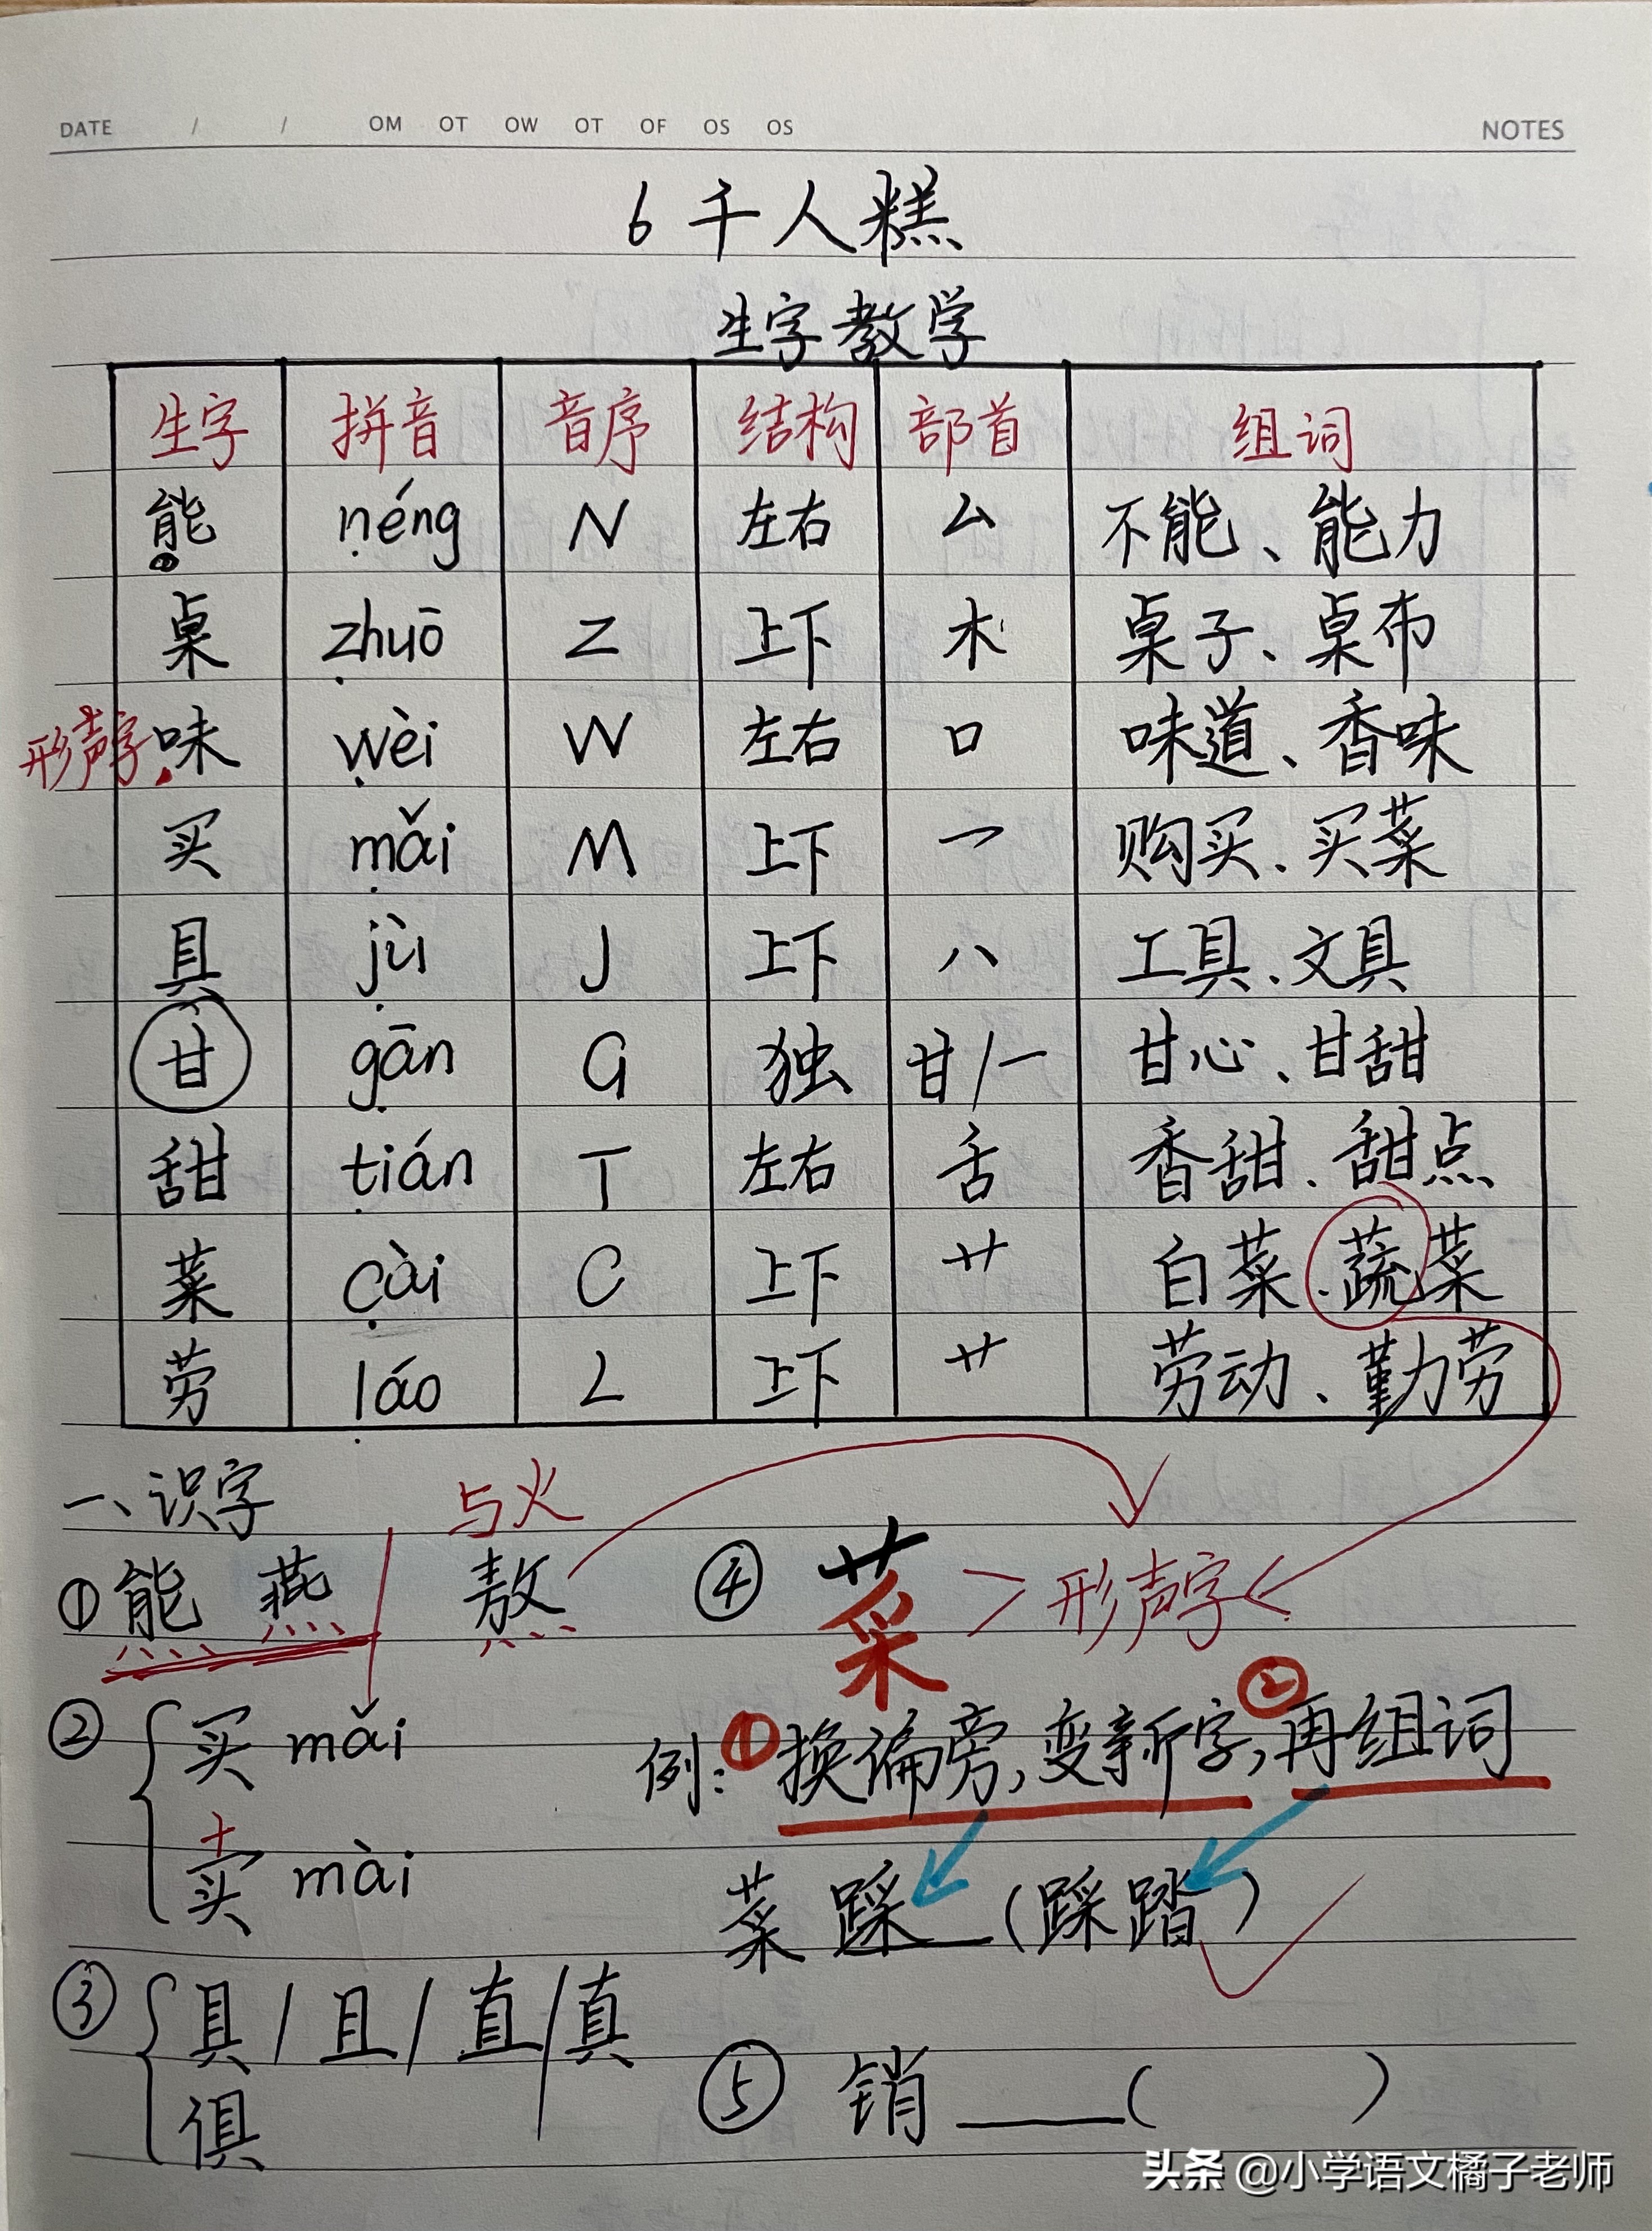 DATE / / OM OT OW OT OF OS OS NOTES
6 千人糕
生字教学
生字 拼音 音序 结构 部首 组词
能 néng N 左右 厶 不能、能力
桌 zhuō Z 上下 木 桌子、桌布
形声字 味 wèi W 左右 口 味道、香味
买 mǎi M 上下 乛 购买、买菜
具 jù J 上下 八 工具、文具
甘 gān G 独 甘/一 甘心、甘甜
甜 tián T 左右 舌 香甜、甜点
菜 cài C 上下 艹 白菜、蔬菜
劳 láo L 上下 艹 劳动、勤劳
一、识字 与火
①能 燕 熬 ④ 菜 >形声字<
② 买 mǎi
例:①换偏旁,变新字,②再组词
卖 mài
菜 踩 (踩踏)
③ 具/且/直/真
俱
⑤ 销____( )
头条 @小学语文橘子老师